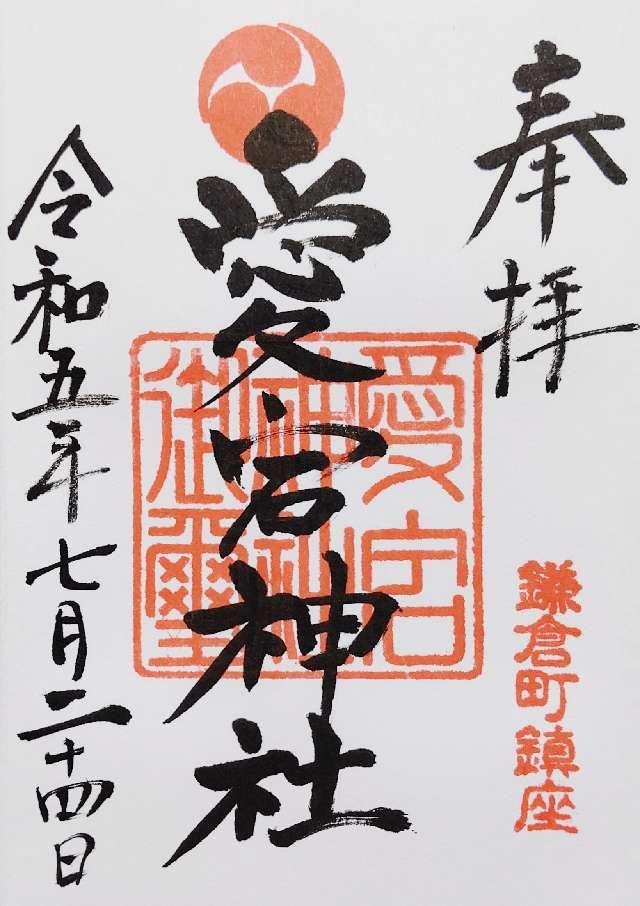 奉拝
鎌倉町鎮座
愛宕神社
愛宕神社御璽
令和五年七月二十四日